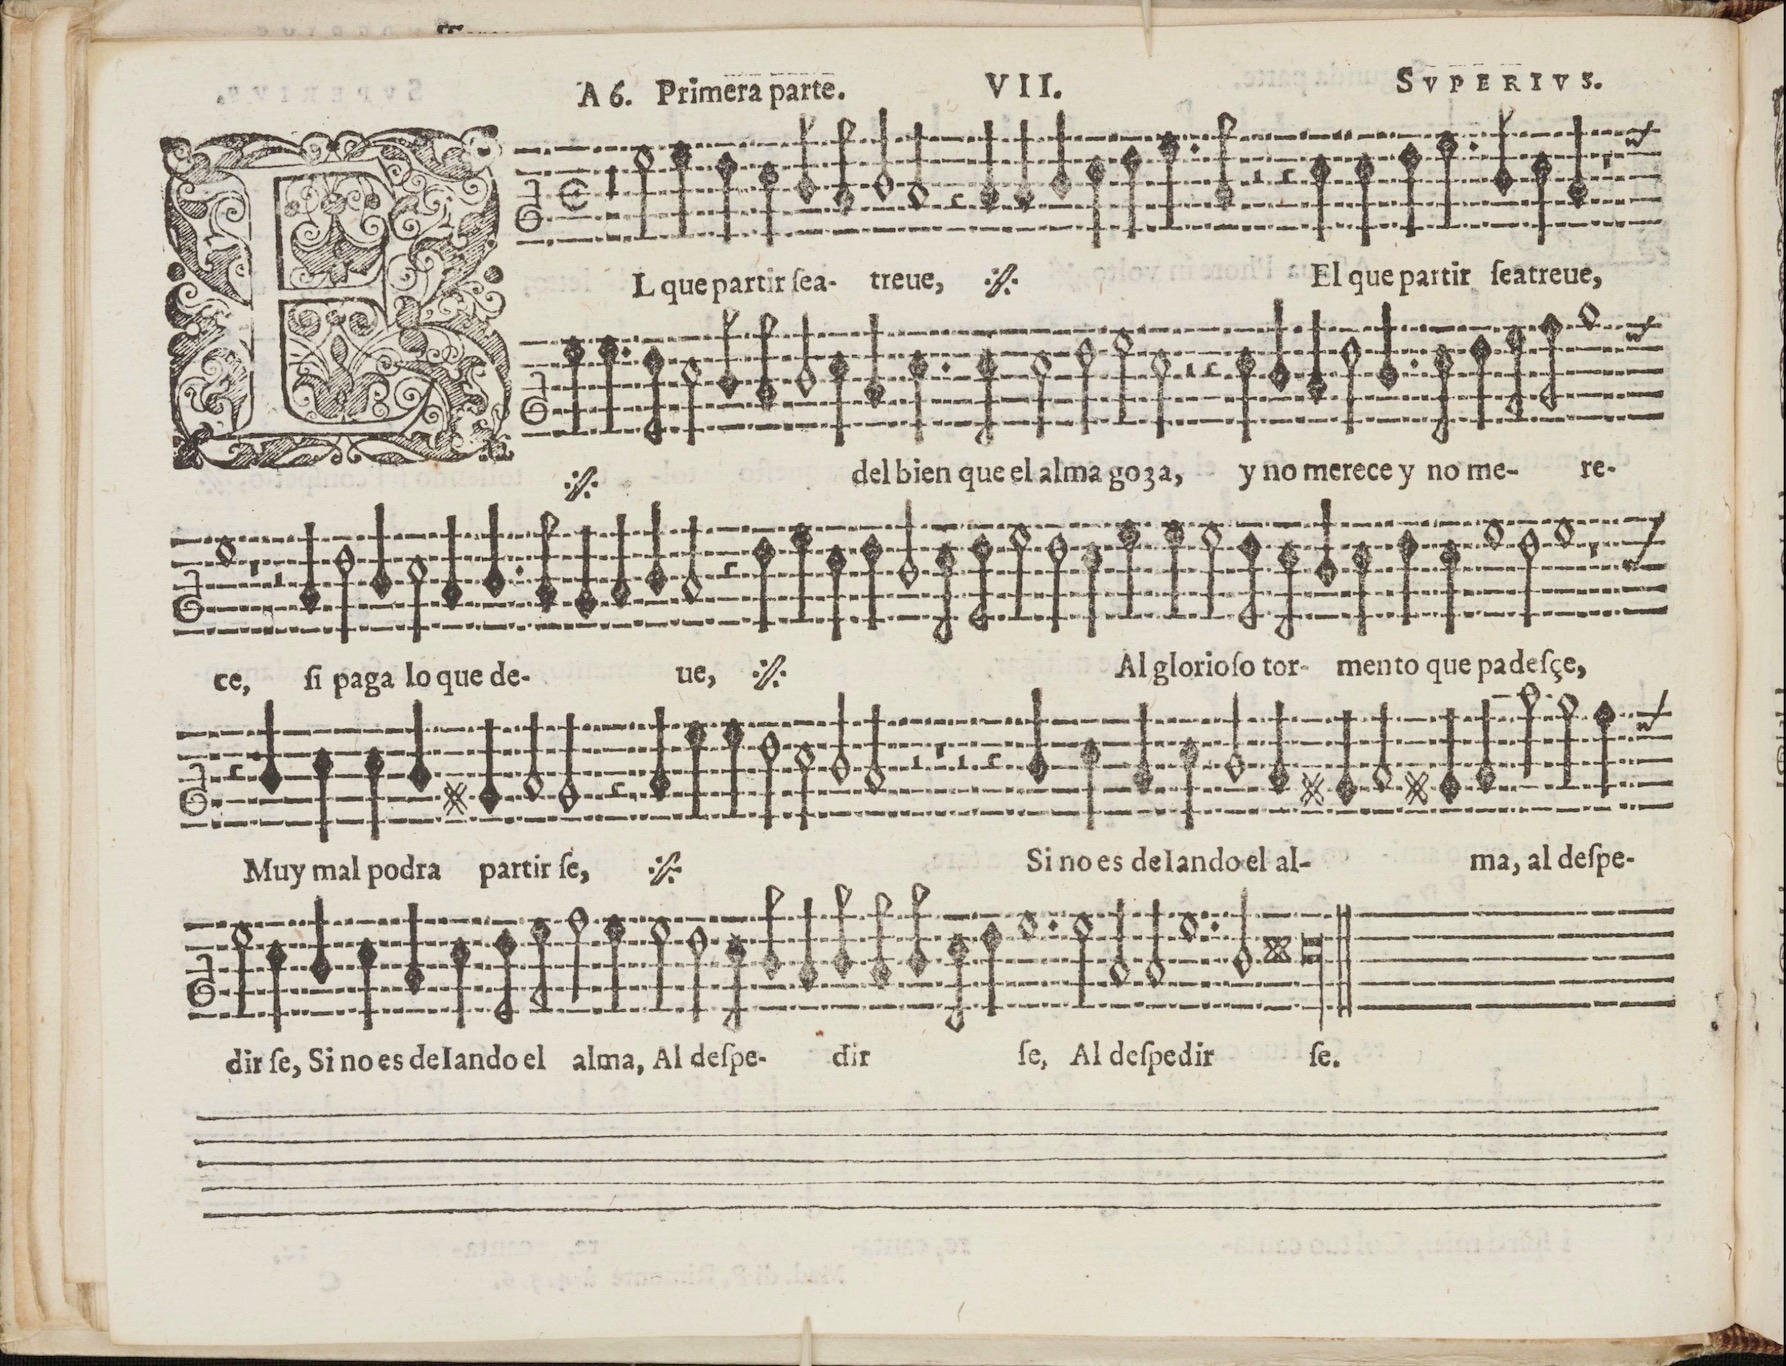 A 6. Primera parte. VII. SVPERIVS.
EL que partir ſea- treue, El que partir ſeatreue,
del bien que el alma goza, y no merece y no me- re-
ce, ſi paga lo que de- ue, Al glorioſo tor- mento que padeſçe,
Muy mal podra partir ſe, Si no es deIando el al- ma, al deſpe-
dir ſe, Si no es deIando el alma, Al deſpe- dir ſe, Al deſpedir ſe.